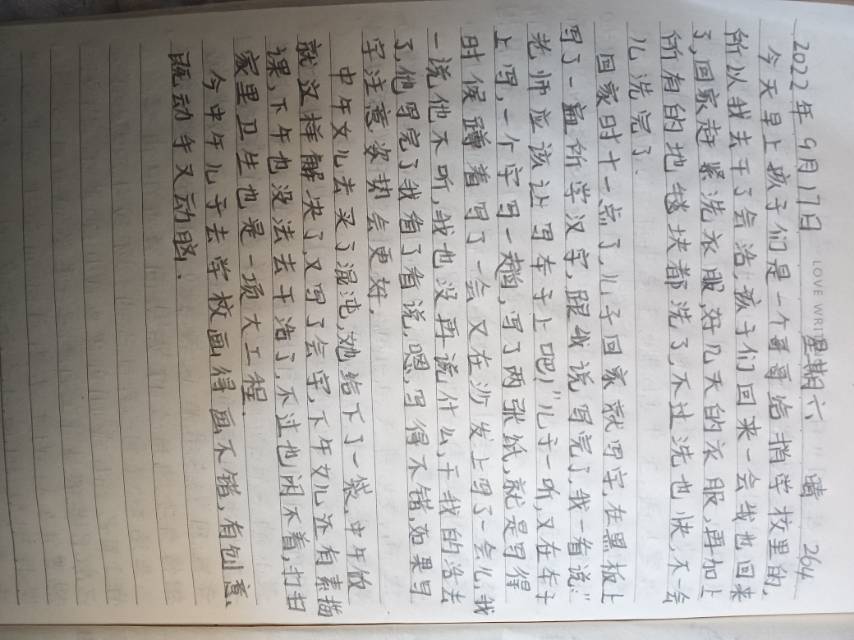 LOVE WRIT
2022年9月17日 星期六 晴 264
今天早上孩子们是一个哥哥给捎学校里的,
所以我去干了会活,孩子们回来一会我也回来
了,回家赶紧洗衣服,好几天的衣服,再加上
所有的地毯块都洗了,不过洗也快,不一会
儿洗完了.
回家时十一点了,儿子回家就写字,在黑板上
写了一遍所学汉字,跟我说写完了,我一看说:“
老师应该让写本子上吧!”儿子一听,又在本子
上写,一个字写一趟,写了两张纸,就是写得
时候蹲着写了一会又在沙发上写了一会儿,我
一说他不听,我也没再说什么,干我的活去
了,他写完了我看了看说,嗯,写得不错,如果写
字注意姿势会更好,
中午女儿去买了混沌,她给下了一袋,中午饭
就这样解决了,又写了会字,下午女儿还有素描
课,下午也没法去干活了,不过也闲不着,打扫
家里卫生也是一项大工程.
今中午儿子去学校画得画不错,有创意、
既动手又动脑.